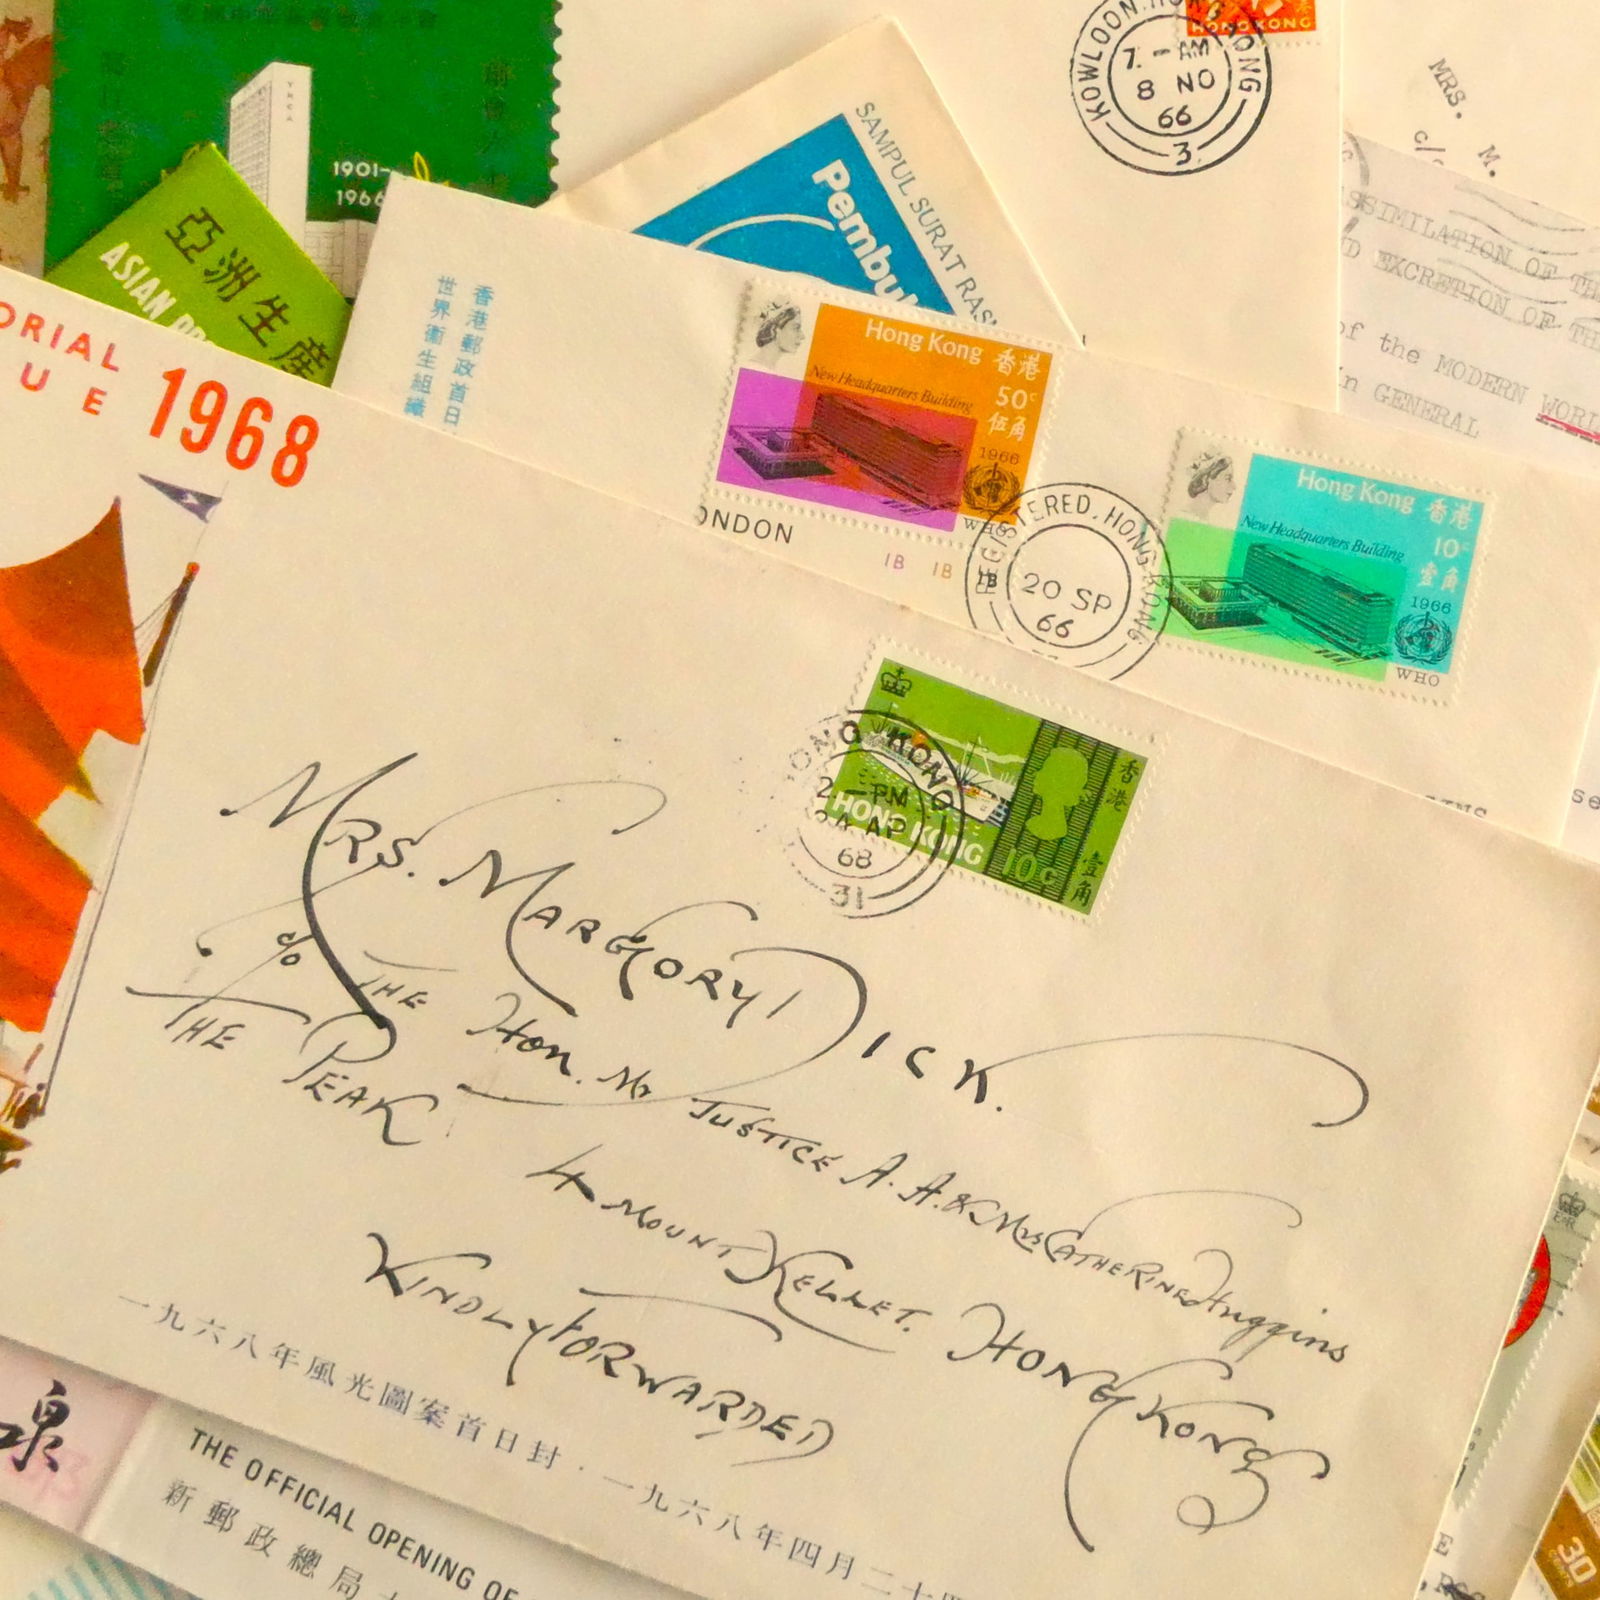 1901-
1966
YMCA
亞洲生產
ASIAN
SAMPUL SURAT
KOWLOON. HONG KONG
7. - AM
8 NO
66
3
HONG KONG
MRS. M.
c/
D EXCRETION OF THE
of the MODERN
in GENERAL
香港郵政首日
世界衞生組織
Hong Kong 香港
New Headquarters Building
50c
伍角
1966
WHO
1B 1B 1B
REGISTERED. HONG KONG
20 SP
66
Hong Kong 香港
New Headquarters Building
10c
壹角
1966
WHO
1968
HONG KONG
2 - PM
24 AP
68
31
香港
HONG KONG
10c
壹角
MRS. MARGORY DICK.
c/o THE Hon. Mr JUSTICE A. A. & Mrs CATHERINE Huggins
THE PEAK
4 MOUNT KELLET. HONG KONG
KINDLY FORWARDED
一九六八年風光圖案首日封 · 一九六八年四月二十四
THE OFFICIAL OPENING OF
新郵政總局
30
CENTS